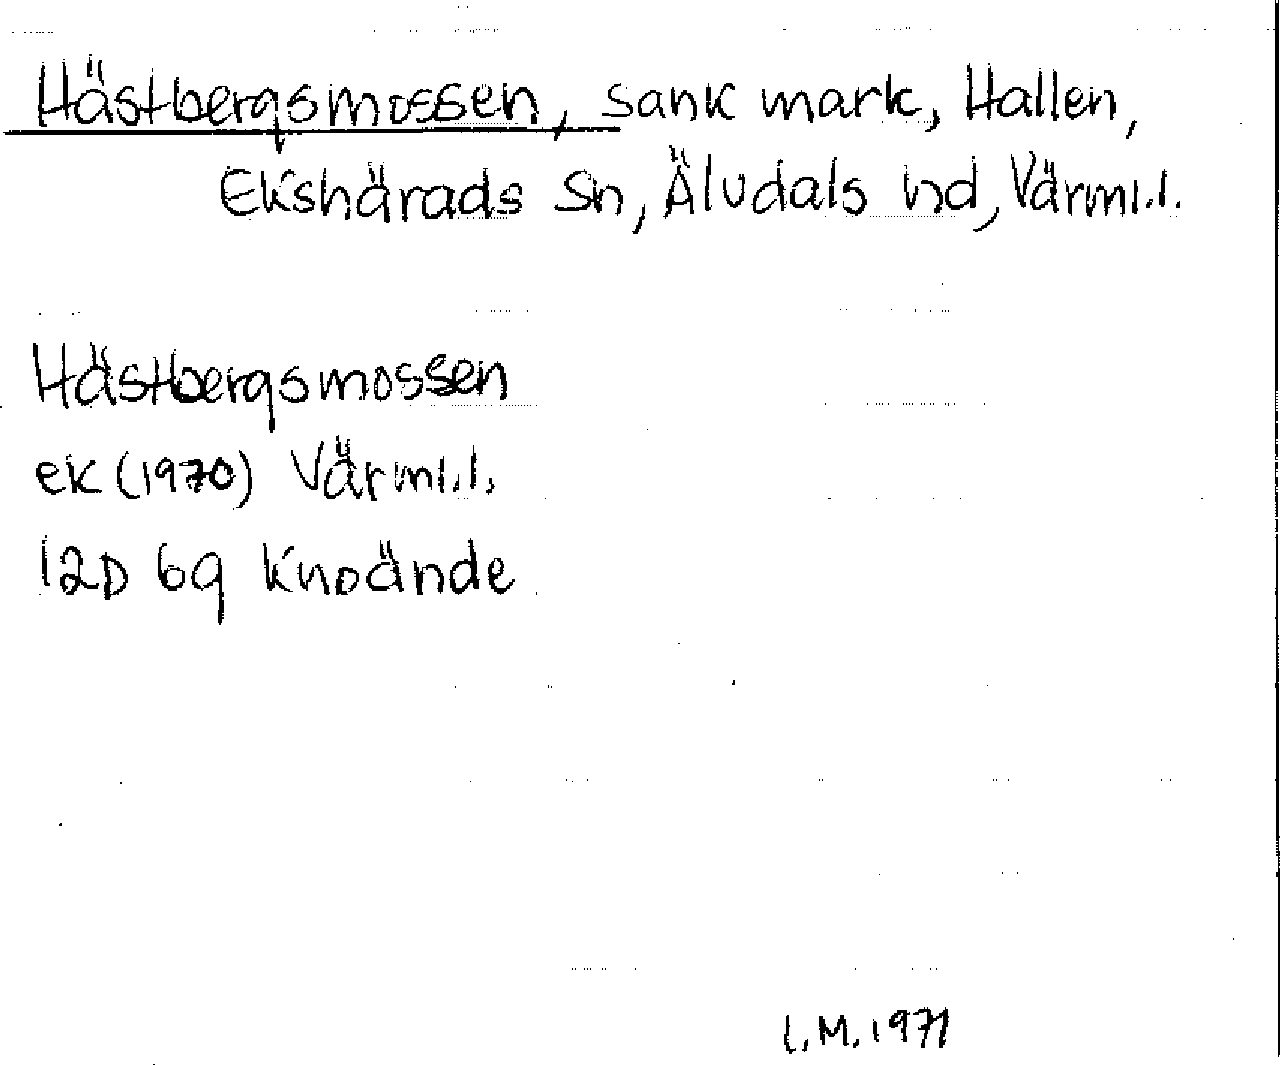 Hästbergsmossen, sank mark, Hallen,
Ekshärads sn, Älvdals hd, Värml.l.
Hästbergsmossen
ek (1970) Värml.l.
12D 6g Knoände
I.M. 1971